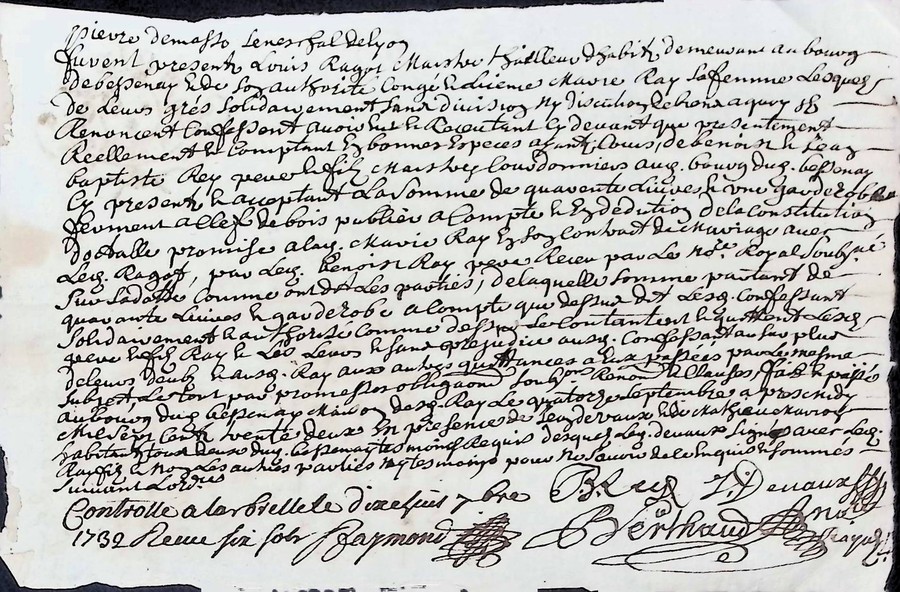 pierre demasso Seneschal de lyon
furent presents Louis Ragot Maistre thailleur dhabitz demeurant au bourg
de bessenay & de son authorité Congé & Licence Marie Ray sa femme Lesquelz
de Leurs grés solidairement sans division ny discution de biens a quoy ilz
Renoncent Confessent avoir heu & Receu tant Cy devant que presentement
Reellement & Comptant En bonnes Especes ayant Cours, de benoist & Jean
baptiste Rey pere & filz Maistres Courdonniers aud. bourg dud. bessenay
Cy presents & acceptant La somme de quarante Livres, & une garderobe
ferment a clef de bois publier a Compte & En dedution de la Constitution
dottalle promise a lad. Marie Ray En son Contrat de Mariage avec
Led. Ragot, par Led. benoist Ray pere Receu par Le no.re Royal soubz.né
sur sa datte Comme ont dit Les parties, de laquelle somme partant de
quarante Livres & garderobe a Compte que dessus dit Lesd. Confessant
solidairement & authorisée Comme dessus se Contantent & quittent Lesd.
pere & filz Ray & Les Leurs & sans prejudice ausd. Confessant au sur plus
de leurs deub & ausd. Ray aux autres quittances a Eux passées par Les mesme
subjet Le tout par promesses obliga.ons soub.ons Renon.ons & Clauses, fait & passé
au bourg dud. bessenay Maison desd. Ray Le quatorze septembre apres midy
Mil sept Cent trente deux En presence de Jean devaux & de Mathieu
habitants tous deux dud. bessenay tesmoins Requis desquels Led. devaux signé avec Led.
Ray filz & non Les autres parties ny tesmoins pour ne scavoir de ce Enquis & sommés
suivant Lord.ce
Controllé a larbresle Le dixhuit 7bre B. Rey J. Devaux
1732 Receu six solz Raymond Berthaud no.re Royal